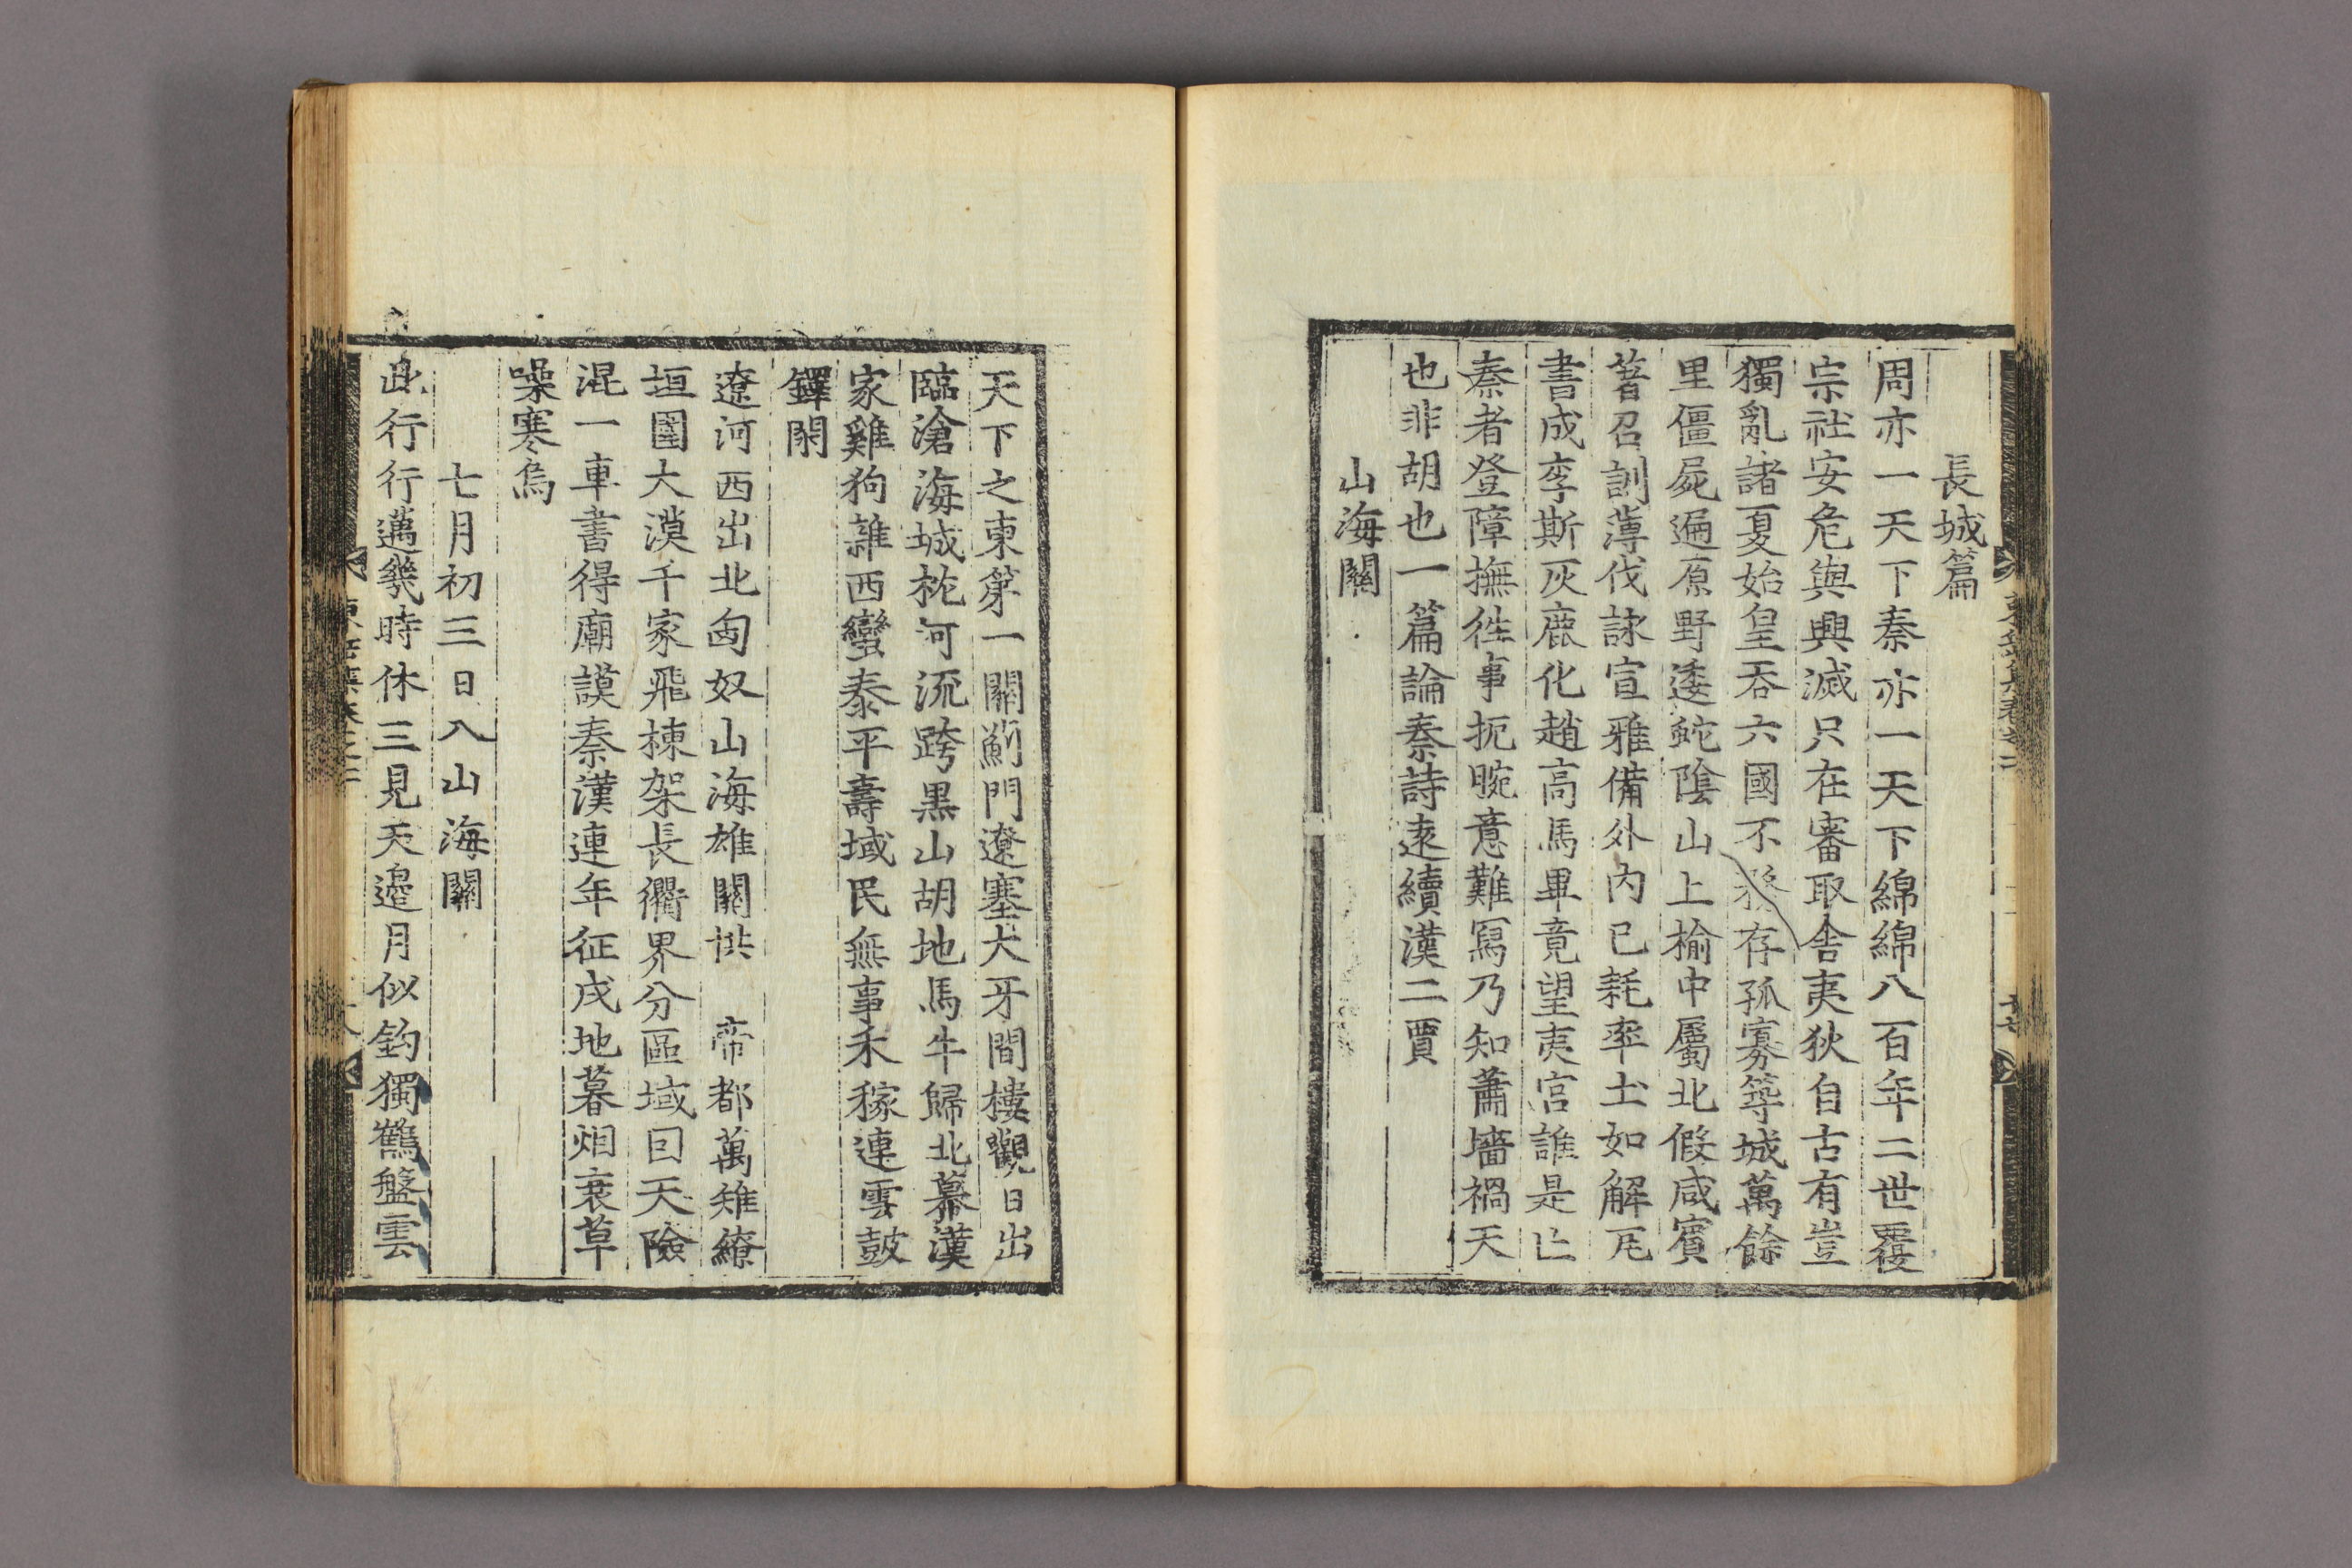 長城篇
周亦一天下秦亦一天下綿綿八百年二世覆
宗社安危與興滅只在審取舍夷狄自古有豈
獨亂諸夏始皇吞六國不務存孤寡築城萬餘
里僵屍遍原野逶蛇陰山上榆中屬北假咸賓
著召訓薄伐詠宣雅備外內已耗率土如解瓦
書成李斯灰鹿化趙高馬畢竟望夷宮誰是亡
秦者登障撫徃事扼腕意難寫乃知蕭墻禍天
也非胡也一篇論秦詩遠續漢二賈
山海關
天下之東第一關薊門遼塞犬牙間樓觀日出
臨滄海城枕河流跨黑山胡地馬牛歸北幕漢
家雞狗雜西蠻泰平壽域民無事禾稼連雲鼓
鐸閑
遼河西出北匈奴山海雄關拱 帝都萬雉繚
垣圍大漠千家飛棟架長衢界分區域囙天險
混一車書得廟謨秦漢連年征戍地暮烟衰草
噪寒烏
七月初三日入山海關
此行行邁幾時休三見天邉月似鈎獨鶴盤雲